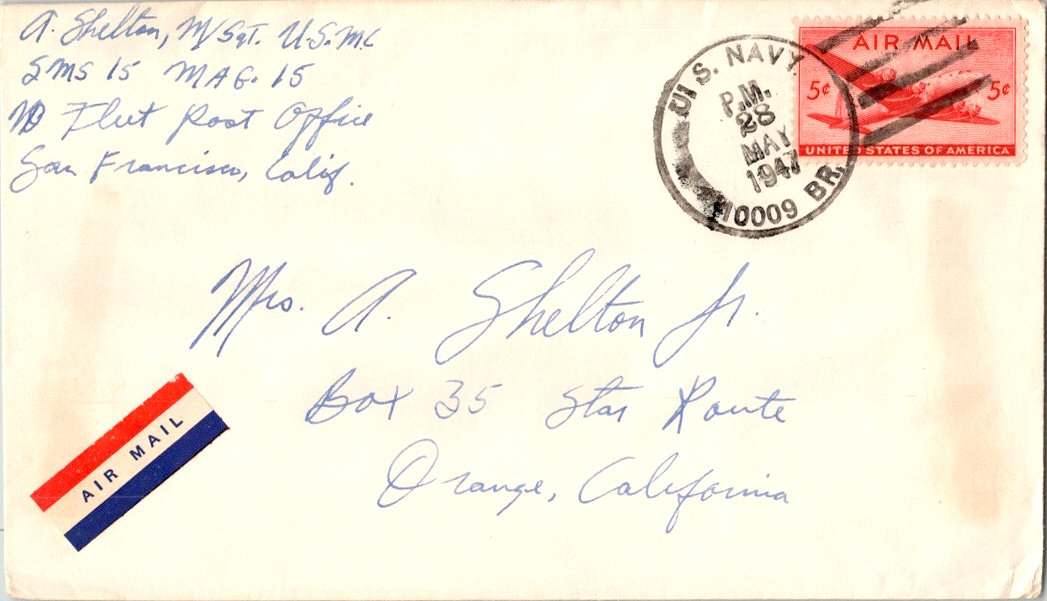 A. Shelton, M/Sgt. U.S.M.C
SMS 15 MAG. 15
Fleet Post Office
San Francisco, Calif.
U. S. NAVY
P.M.
28
MAY
1947
10009 BR.
AIR MAIL
5¢ 5¢
UNITED STATES OF AMERICA
Mrs. A. Shelton Jr.
Box 35 Star Route
Orange, California
AIR MAIL